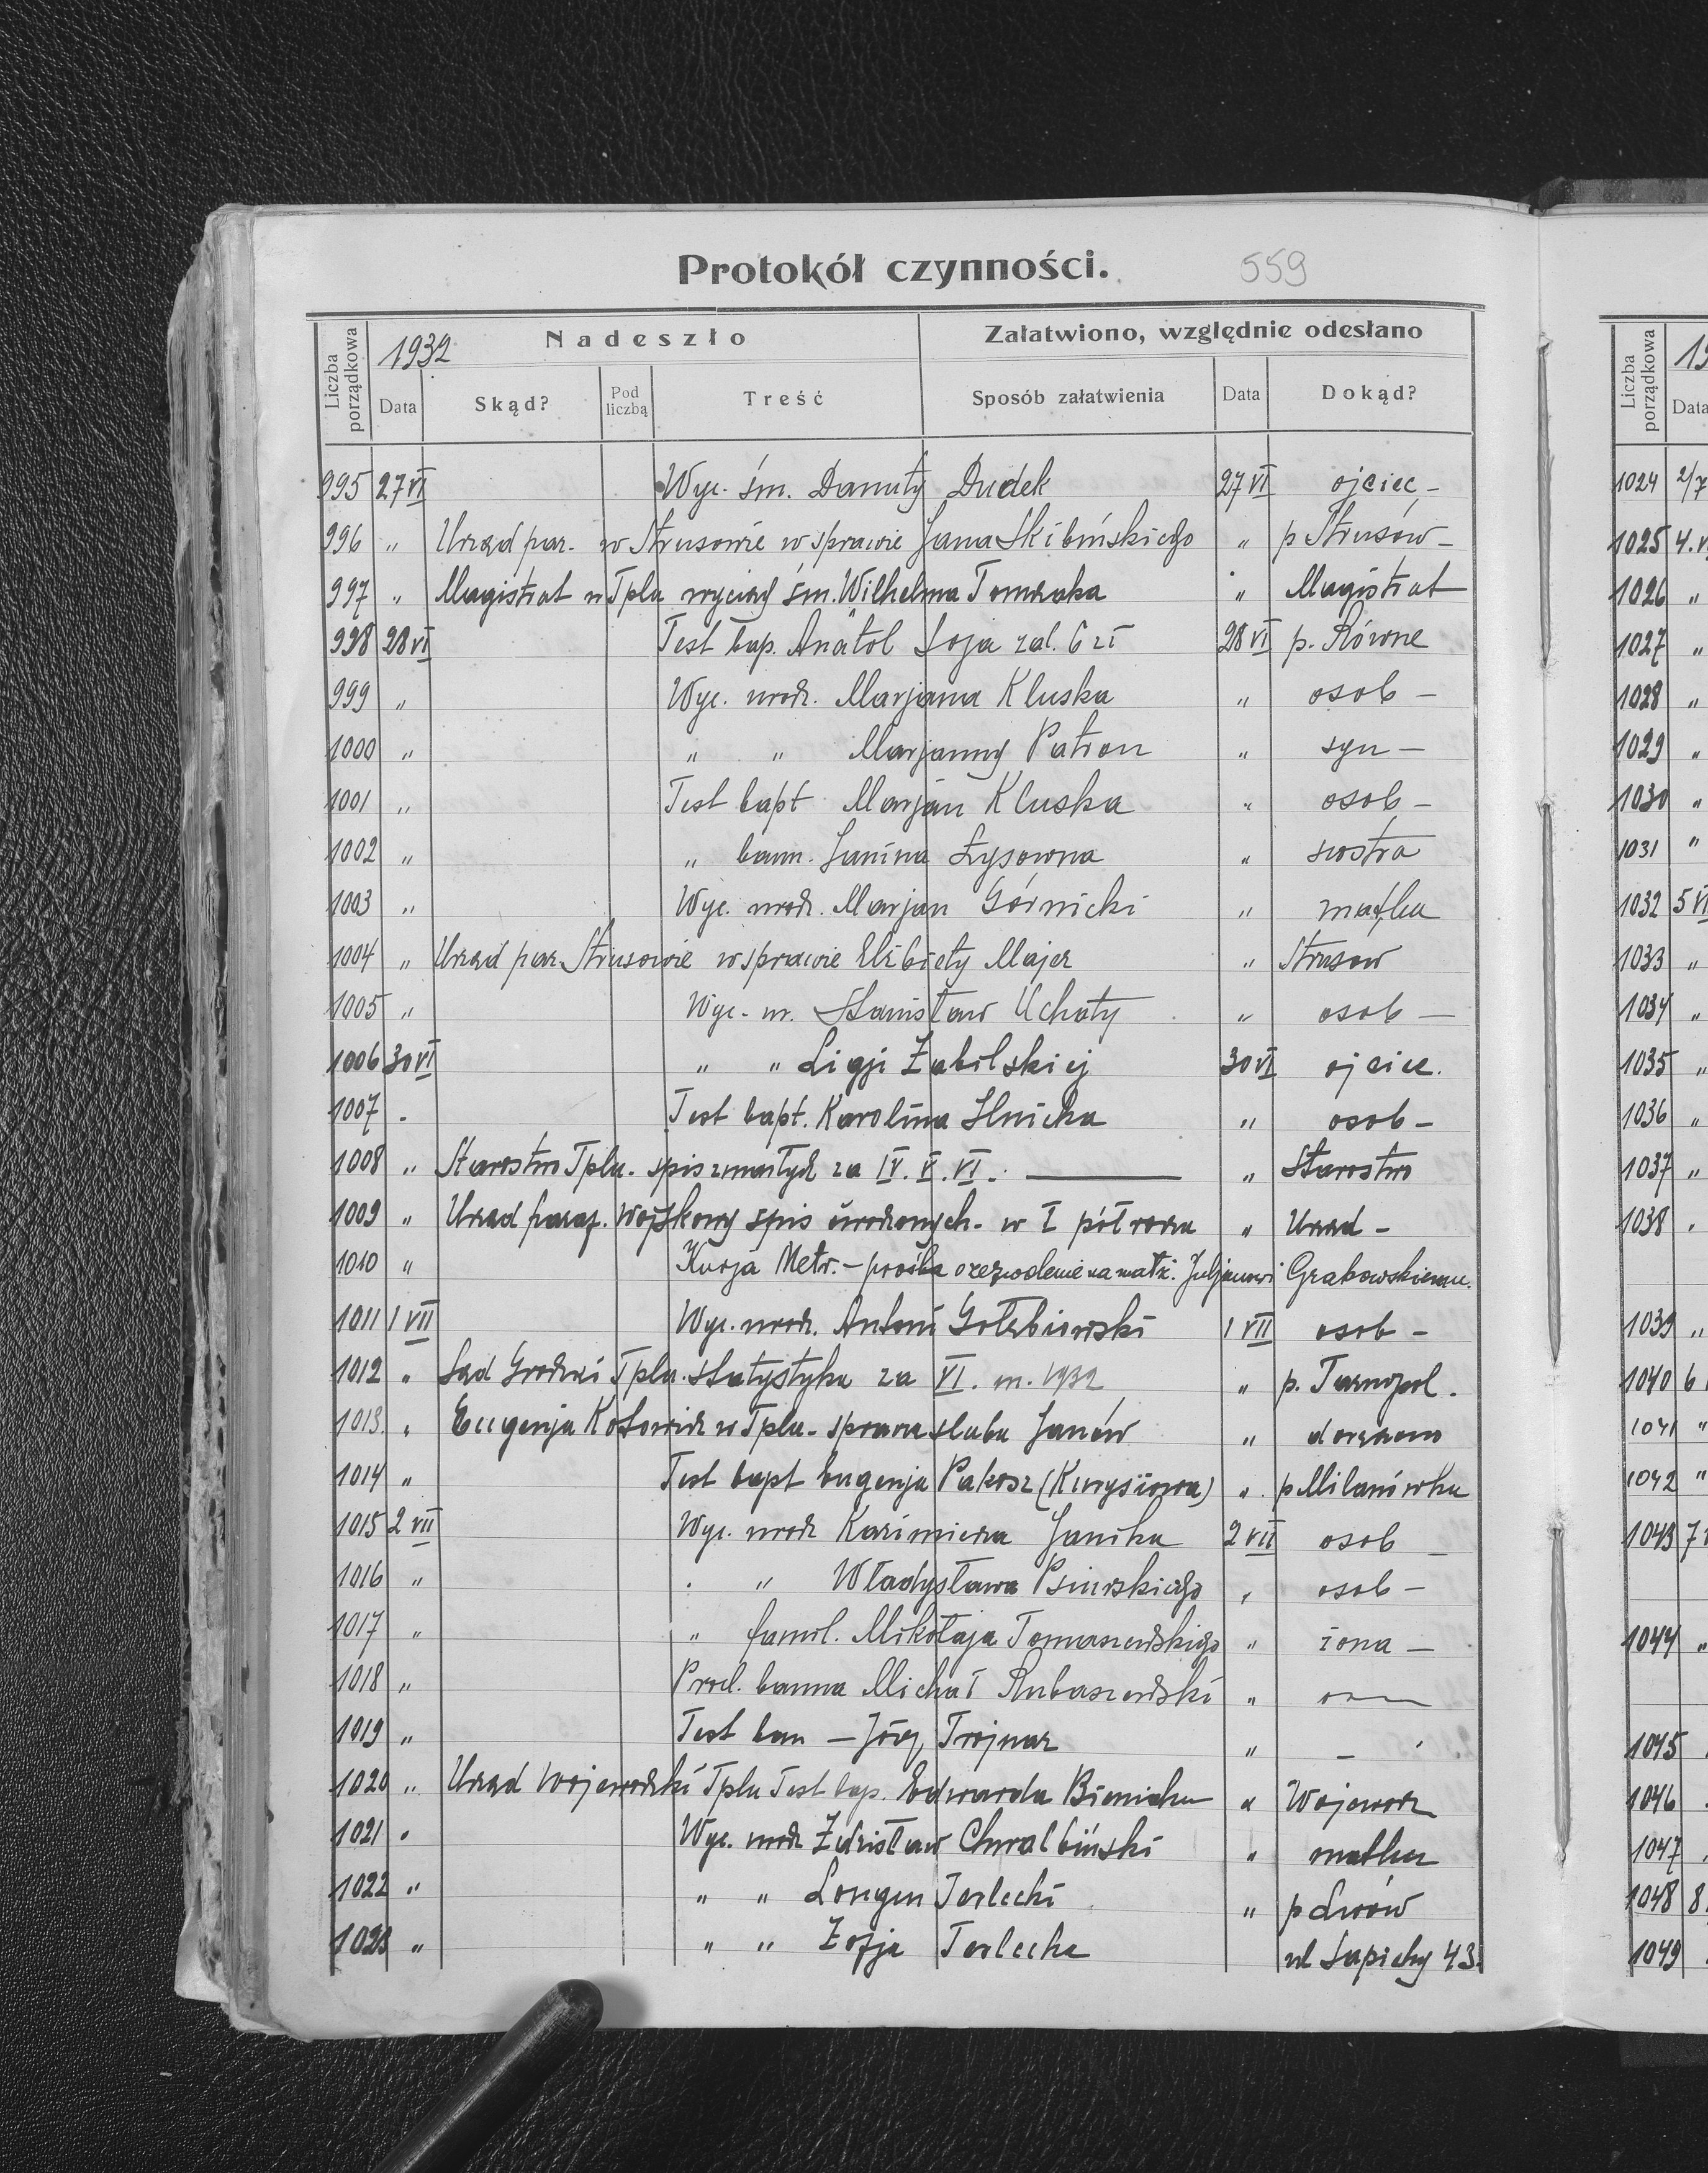 Protokół czynności. 559
Liczba porządkowa 1932 Nadeszło Załatwiono, względnie odesłano
Data Skąd? Pod liczbą Treść Sposób załatwienia Data Dokąd?
995 27 VI Wyc. śm. Danuty Dudek 27 VI ojciec -
996 " Urząd par. w Strusowie w sprawie Jana Skibińskiego " p Strusów -
997 " Magistrat w Tplu wyciąg śm. Wilhelma Tomczaka " Magistrat
998 28 VI Test bap. Anatol Soja zał. 6 zł 28 VI p. Równe
999 " Wyc. urodz. Marjana Kluska " osob -
1000 " " " Marjanny Patron " syn -
1001 " Test bapt Marjan Kluska " osob -
1002 " " bann. Janina Łysowna " siostra
1003 " Wyc. urodz. Marjan Górnicki " matka
1004 " Urząd par. Strusowie w sprawie Elżbiety Majer " Strusow
1005 " Wyc. m. Stanisław Uchaty " osob -
1006 30 VI " " Ligji Zabilskiej 30 VI ojciec.
1007 . Test bapt. Karolina Ilnicka " osob -
1008 " Starostwo Tplu. spis zmarłych za IV. V. VI. " Starostwo
1009 " Urząd paraf. Wojskowy spis urodzonych w I półroczu " Urząd -
1010 " Kurja Metr. - prośba o zezwolenie na małż. Juljanowi Grabowskiemu.
1011 1 VII Wyc. urodz. Antoni Gołębiowski 1 VII osob -
1012 " Sąd Grodzki Tplu. statystyka za VI. m. 1932 " p. Tarnopol.
1013. " Eugenja Kotowicz w Tplu - sprawa ślubu Janów " doręczono
1014 " Test bapt Eugenja Pakosz (Kurysiowa) " p Milanówku
1015 2 VII Wyc. urodz Kazimierza Janika 2 VII osob -
1016 " . " Władysława Psiurskiego " osob -
1017 " " famil. Mikołaja Tomaszewskiego " żona -
1018 " Procl. banna Michał Rubaszewski "
1019 " Test ban - Józef Trojnar " -
1020 " Urząd Wojewodzki Tplu Test bap. Edwarda Bieniek " Wojewodz
1021 " Wyc. urodz Zdzisław Chwalbiński " matka
1022 " " " Longin Terlecki " p Lwów
1023 " " " Zofja Terlecka ul Sapiehy 43.
Liczba porządkowa 19
Data
1024 2/7
1025 4. V
1026 "
1027 "
1028 "
1029 "
1030 "
1031 "
1032 5 VI
1033 "
1034 "
1035 "
1036 "
1037 "
1038 .
1039 "
1040 6
1041 "
1042 "
1043 7
1044 "
1045
1046
1047
1048 8
1049